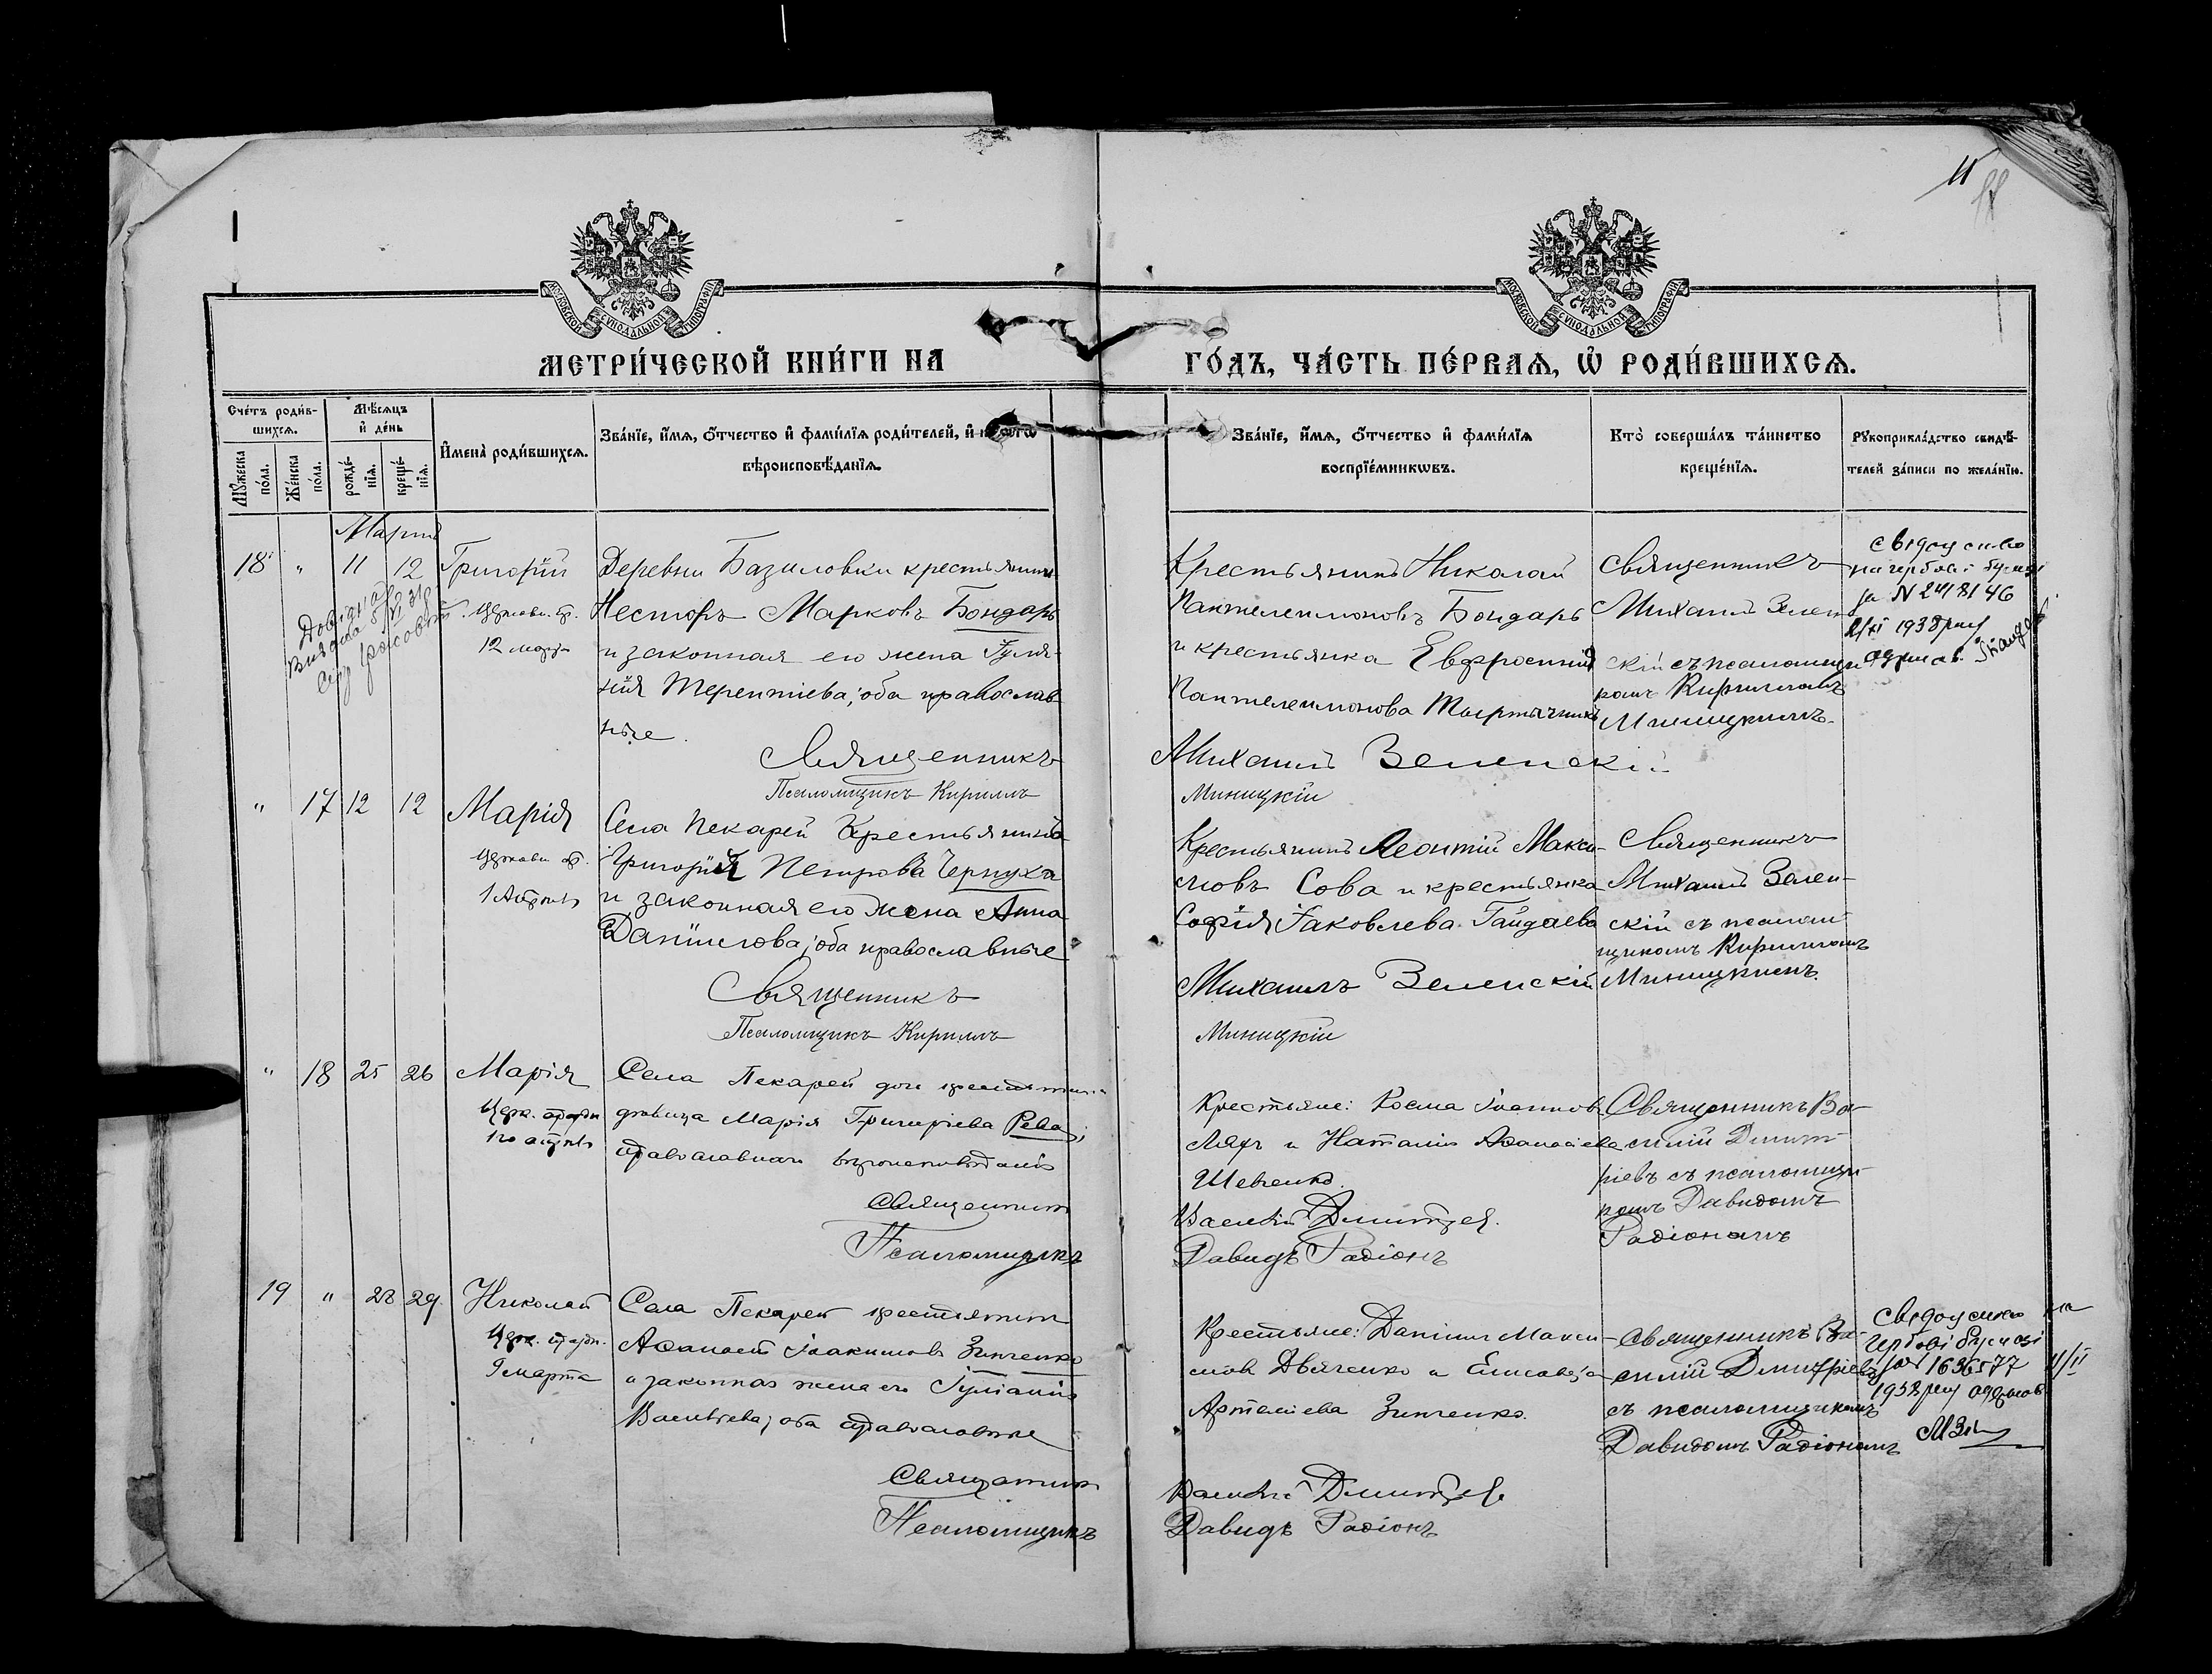 11
МОСКОВСКОЙ СѴНОДАЛЬНОЙ ТИПОГРАФІИ
МОСКОВСКОЙ СѴНОДАЛЬНОЙ ТИПОГРАФІИ
МЕТРИ́ЧЕСКОЙ КНИ́ГИ НА
ГО́ДЪ, ЧА́СТЬ ПЕ́РВАѦ, Ѡ РОДИ́ВШИХСѦ.
Сче́тъ роди́в-
шихсѧ.
Мѣ́сѧцъ
и҆ де́нь
Мꙋ́жеска
по́ла.
Же́нска
по́ла.
рожде́-
нїѧ.
креще́-
нїѧ.
И҆мена̀ роди́вшихсѧ.
Зва́нїе, и҆́мѧ, ѻ҆́тчество и҆ фами́лїѧ роди́телей, и҆
вѣроисповѣ́данїѧ.
Зва́нїе, и҆́мѧ, ѻ҆́тчество и҆ фами́лїѧ
воспрїе́мникѡвъ.
Кто̀ соверша́лъ та́инство
креще́нїѧ.
Рꙋкоприкла́дство свидѣ́-
телей за́писи по жела́нїю.
Мартъ
18 " 11 12 Григорій
12 марта
Деревни Базиловки крестьянинъ
Несторъ Марковъ Бондарь
и законная его жена Іулі-
нія Терентіева; оба православ-
ные.
Священникъ
Псаломщикъ Кириллъ
Крестьянинъ Николай
Пантелеимоновъ Бондарь
и крестьянка Евфросинія
Пантелеимонова
Михаилъ Зеленскій
Миницкій
Священникъ
Михаилъ Зелен
скій съ псаломщи
комъ Кирилломъ
Миницкимъ.
Свідоцство
на гербові бумазі
за N 2418146
1938 року
" 17 12 12 Марія
1 Апрѣля
Села Пекарей Крестьянинъ
Григорій Петровъ Чепуха
и законная его жена Анна
Даніилова; оба православные
Священникъ
Псаломщикъ Кириллъ
Крестьянинъ Леонтій Макси-
мовъ Сова и крестьянка
Софія Іаковлева Гайдаева
Михаилъ Зеленскій
Миницкій
Священникъ
Михаилъ Зелен-
скій съ псалом-
щикомъ Кирилломъ
Миницкимъ.
" 18 25 26 Марія
Села Пекарей дочь крестьянина
дѣвица Марія Григоріева Рева;
православнаго вѣроисповѣданія
Священникъ
Псаломщикъ
Крестьяне: Косма Іоанновъ
Ляхъ и Наталія Аѳанасіева
Шевченко.
Василій Димитріевъ
Давидъ Радіонъ
Священникъ Ва-
силій Димит-
ріевъ съ псаломщи-
комъ Давидомъ
Радіономъ
19 " 28 29 Николай
9 марта
Села Пекарей крестьянинъ
Аѳанасій Іоакимовъ Зинченко
и законная жена его Іуліанія
Васильева; оба православные
Священникъ
Псаломщикъ
Крестьяне: Даніилъ Макси-
мовъ Дяченко и Елисавета
Артеміева Зинченко.
Василій Димитріевъ
Давидъ Радіонъ
Священникъ Ва-
силій Димитріевъ
съ псаломщикомъ
Давидомъ Радіономъ
Свідоцство на
гербові бумазі
1636577 11/II
1938 року одержав